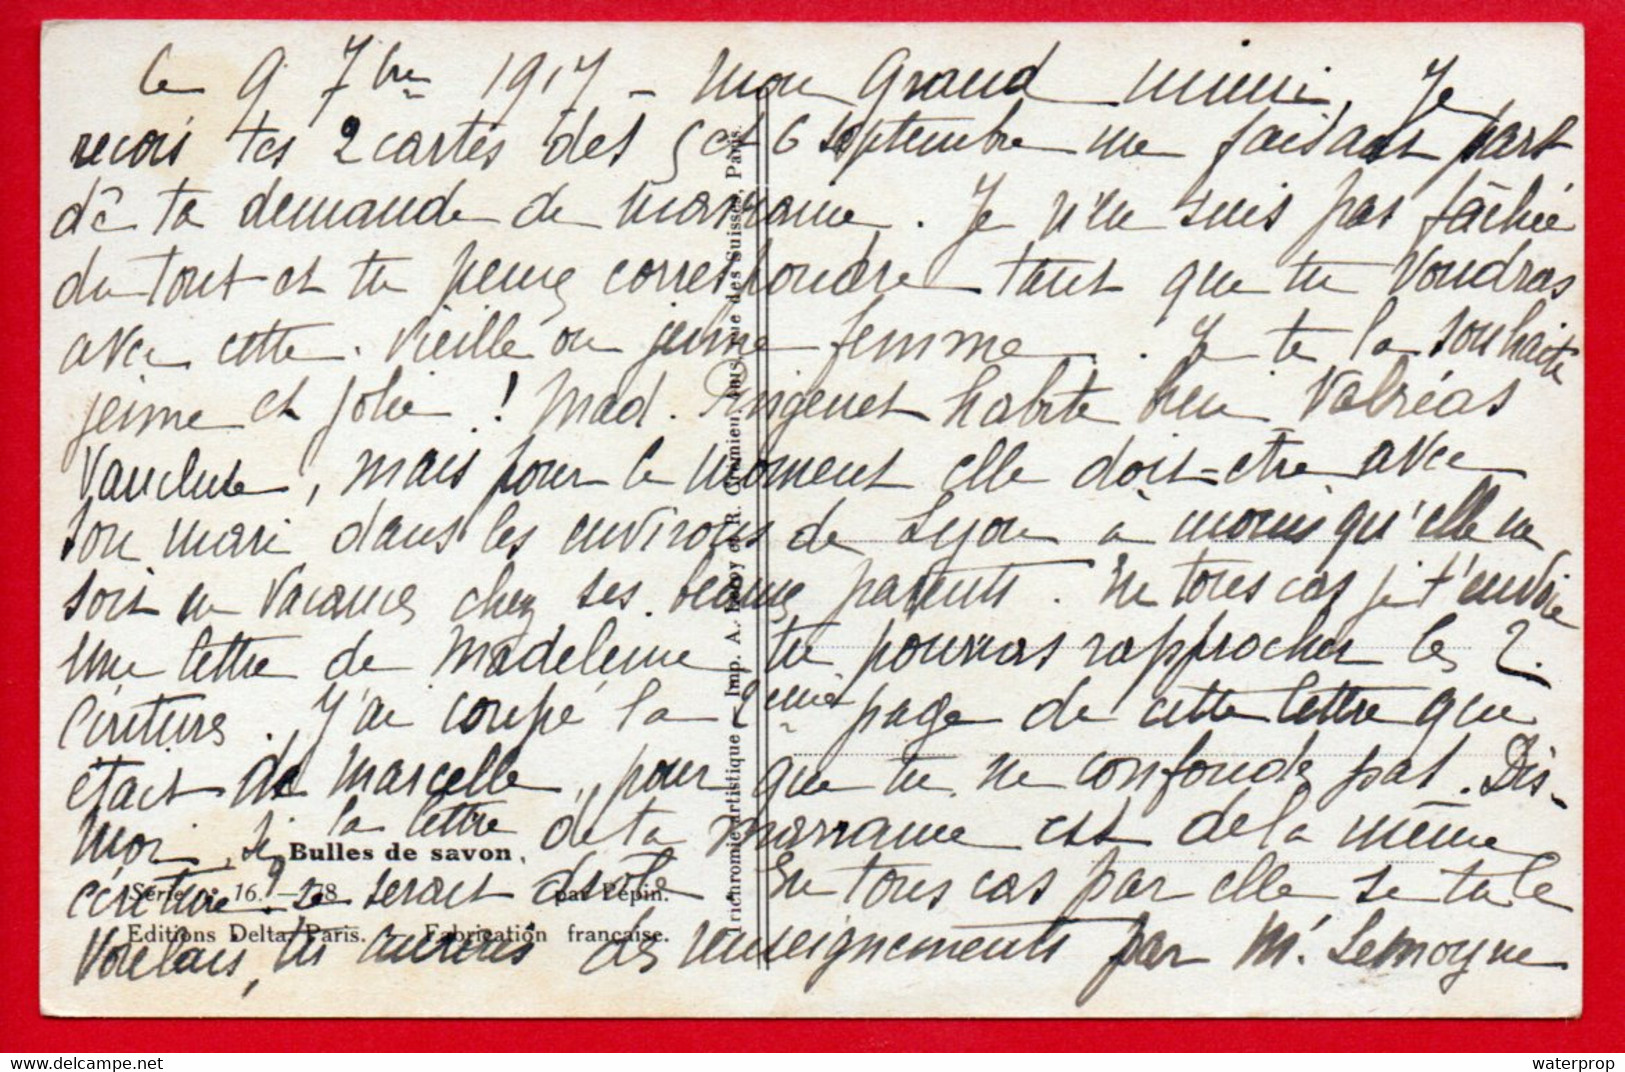 le 9 7bre 1917 – Mon Grand mimi, Je
reçois tes 2 cartes des 5 et 6 septembre me faisant part
de ta demande de marraine. Je n'en suis pas fâchée
du tout et tu peux correspondre tant que tu voudras
avec cette vieille ou jeune femme. Je te la souhaite
jeune et jolie ! Mad. habite bien Valréas
Vaucluse, mais pour le moment elle doit-être avec
son mari dans les environs de Lyon à moins qu'elle ne
soit en vacances chez ses beaux parents. En tous cas je t'envoie
une lettre de Madeleine tu pourras rapprocher les 2
écritures. J'ai coupé la 2ème page de cette lettre que
était de Marcelle, pour que tu ne confondes pas. Dis-
moi si la lettre de ta marraine est de la même
écriture ? Ce serait drôle En tous cas par elle si tu le
voulais, tu aurais des renseignements par Mr Lemoyne
Bulles de savon.
Série 16. — 178 par Pépin.
Editions Delta, Paris. — Fabrication française.
Trichromie artistique — Imp. A. Leroy et R. Crémieu, rue des Suisses, Paris.
waterprop